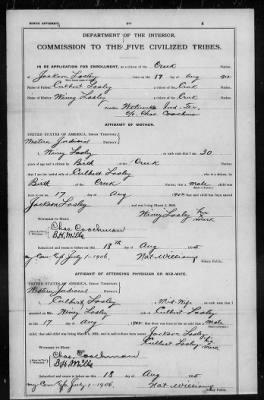 DEPARTMENT OF THE INTERIOR.
COMMISSION TO THE FIVE CIVILIZED TRIBES.
IN RE APPLICATION FOR ENROLLMENT, as a citizen of the Creek Nation,
of Jackson Losley, born on the 17 day of Aug
Name of Father: Culbert Losley a citizen of the Creek Nation.
Name of Mother: Winey Losley a citizen of the Creek Nation.
Postoffice Wetumka Ind. Ter.
c/o Chas Coachman
AFFIDAVIT OF MOTHER.
UNITED STATES OF AMERICA, INDIAN TERRITORY
Western Judicial DISTRICT.
I, Winey Losley, on oath state that I am 30
years of age and a citizen by Birth of the Creek Nation;
that I am the lawful wife of Culbert Losley, who is a citizen, by
Birth of the Creek Nation; that a male child was
born to me on 17 day of Aug
Jackson Losley, and was living March 4, 1905.
Winey Losley her mark
Witnesses to Mark:
Chas Coachman
B.H. Mills
Subscribed and sworn to before me this 18th day of Aug 1905
My Com Exp July 1-1906. Nat Williams
Notary Public.
AFFIDAVIT OF ATTENDING PHYSICIAN OR MID-WIFE.
UNITED STATES OF AMERICA, INDIAN TERRITORY
Western Judicial DISTRICT.
I, Culbert Losley, a Mid Wife, on oath state that I
attended on Mrs. Winey Losley, wife of Culbert Losley
on the 17 day of Aug; that there was born to her on said date a male
child; that said child was living March 4, 1905, and is said to have been named Jackson Losley
Culbert Losley his mark
Witnesses to Mark:
Chas Coachman
B.H. Mills
Subscribed and sworn to before me this 18 day of Aug 1905
My Com Exp July 1-1906. Nat Williams
Notary Public.